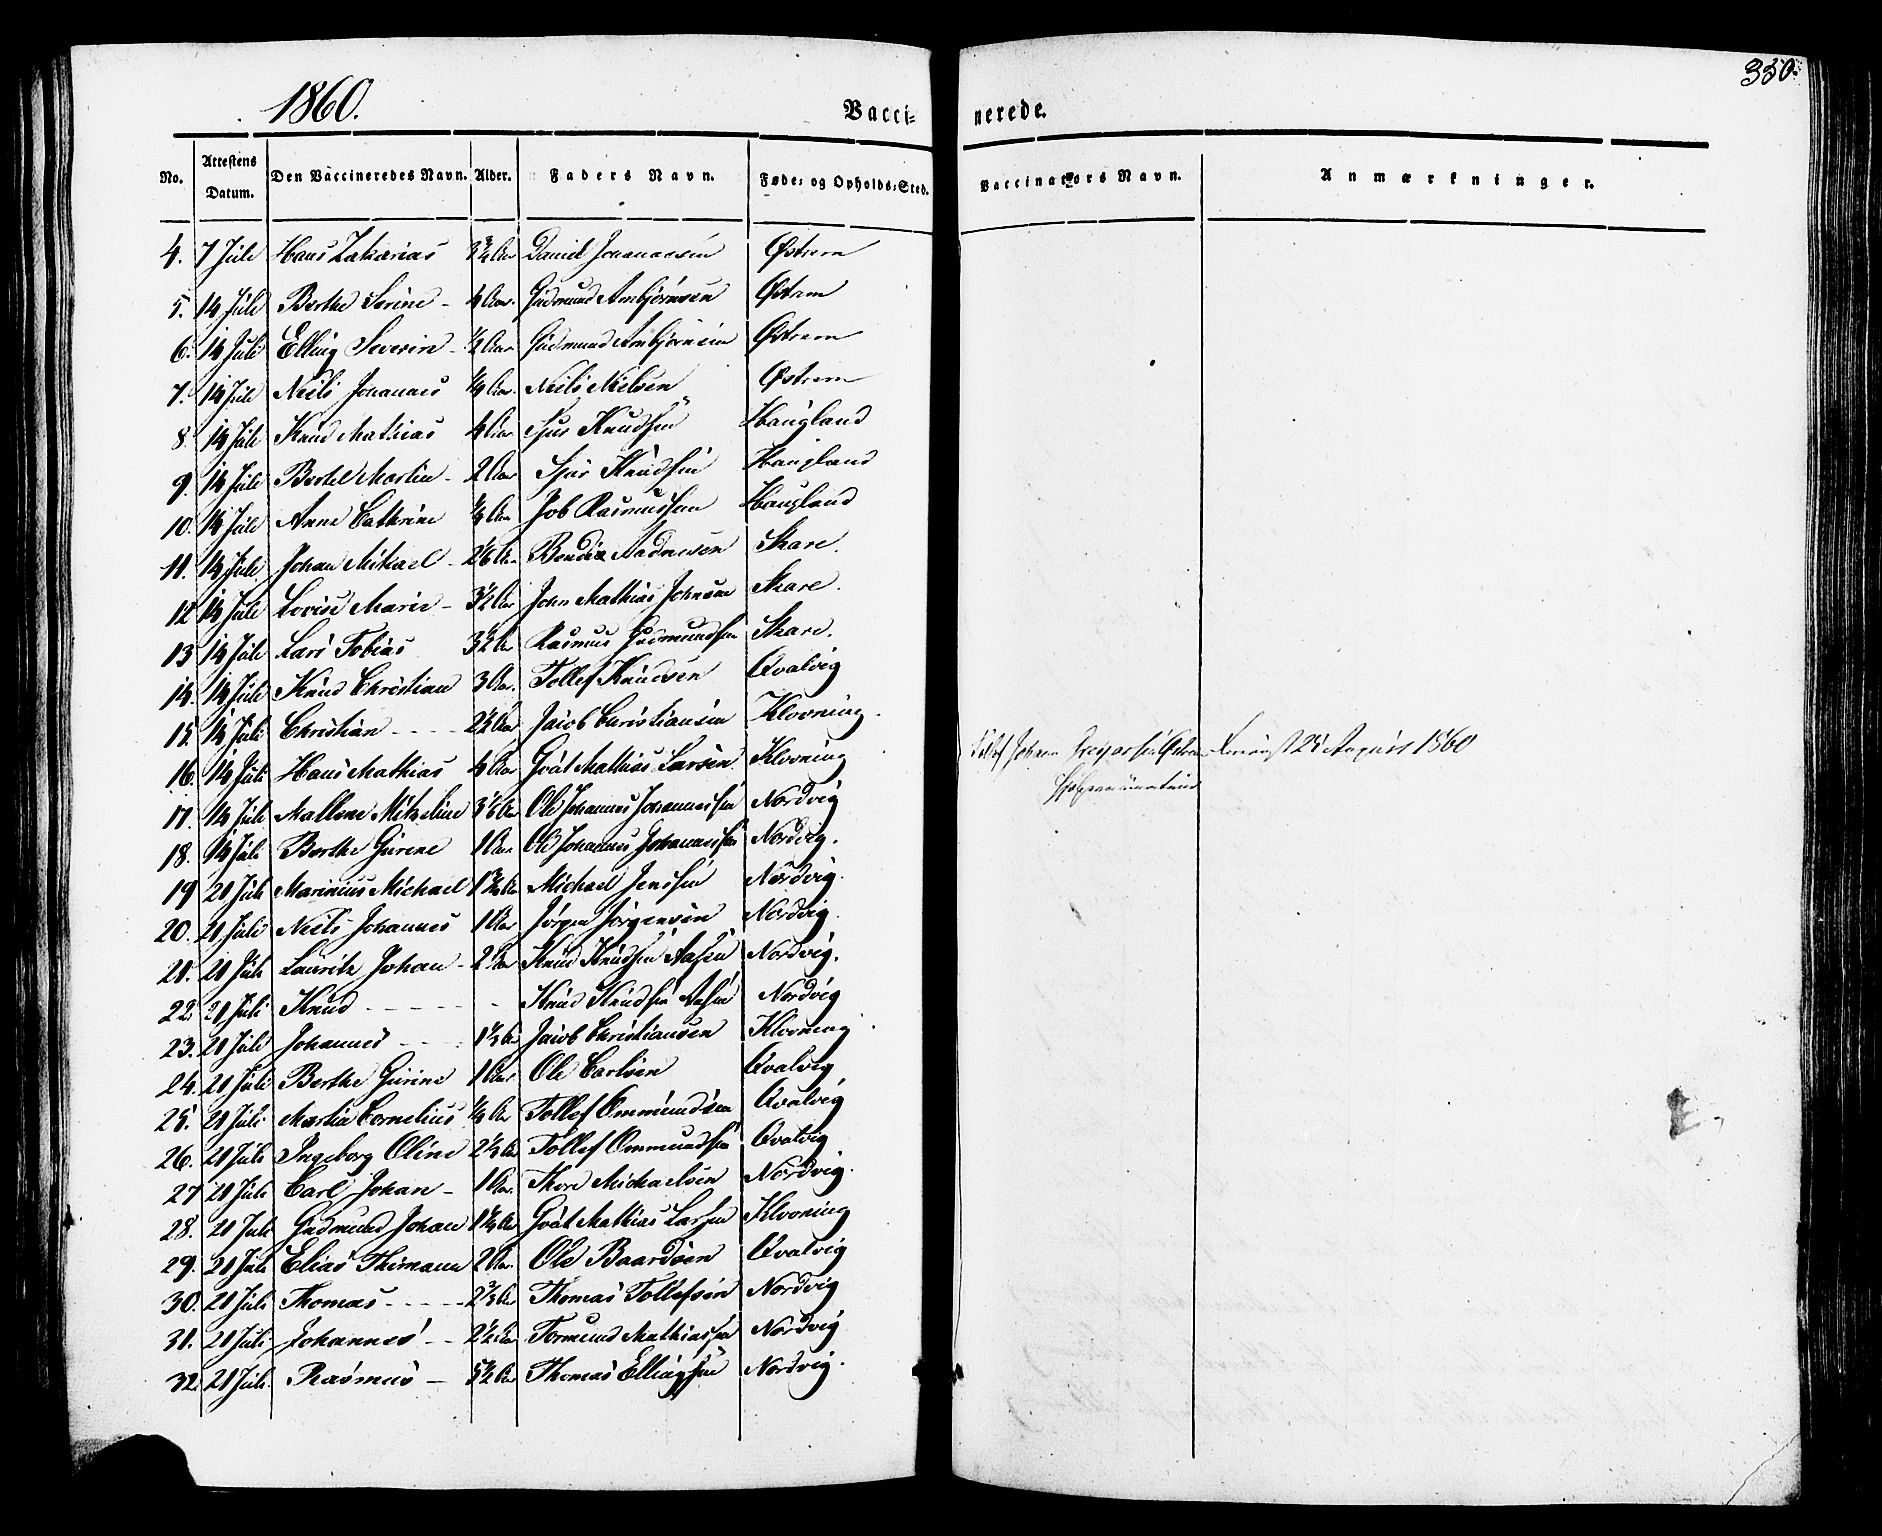 1860.
Vacci=
nerede.
330.
No. Attestens Datum. Den Vaccineredes Navn. Alder. Faders Navn. Føde= og Opholds=Sted. Vaccinators Navn. Anmærkninger.
4. 7 Juli Hans Zakarias Aar Daniel Johannesen Østrem
5. 14 Juli Berthe Serine - 4 Aar. Gudmund Ambjörnsen Østrem
6. 14 Juli Elling Severin - 1/2 Aar Gudmund Ambjörnsen Østrem
7. 14 Juli Neils Johannes Aar. Neils Nielsen Østrem
8. 14 Juli Knud Mathias 4 Aar Sjur Knudsen Haugland
9. 14 Juli Berthel Martin - 2 Aar Sjur Knudsen Haugland
10. 14 Juli Anne Cathrine Aar Job Rasmussen Haugland
11. 14 Juli Johan Mikael - Aar Bendix Aadnesen Skare.
12 14 Juli Lovise Marie - 3 1/2 Aar John Mathias Johnsen Skare.
13 14 Juli Lars Tobias 3 1/2 Aar Rasmus Gudmundsen Skare.
14. 14 Juli Knud Christian 3 Aar. Tollef Knudsen Qvalvig
15. 14 Juli Christian - - - - Aar Jacob Christiansen Klovning.
16. 14 Juli Hans Mathias 4 Aar Goat Mathias Larsen Klovning
17. 14 Juli Mallene Aar Ole Johannes Johannessen Nordvig
18. 14 Juli Berthe Gurine 1 Aar Ole Johannes Johannessen Nordvig.
19 20 Juli Marinius Michael Aar Michael Jenssen Nordvig.
20. 20 Juli Neils Johannes 1 Aar Jörgen Jörgensen Nordvig.
21. 20 Juli Lauritz Johan - Aar Knud Knudsen Aasen Nordvig.
22. 20 Juli Knud - - - - - Knud Knudsen Aasen Nordvig
23. 20 Juli Johannes - - - Jacob Christiansen Klovning.
24. 20 Juli Berthe Gurine 1 Aar Ole Carlsen Qvalvig
25. 20 Juli Martin Cornelius Aar Tollef Ommundsen Qvalvig
26. 20 Juli Ingeborg Oline Aar Tollef Ommundsen Qvalvig
27 20 Juli Carl Johan - 1 Aar. Thore Michaelsen Nordvig.
28. 20 Juli Gudmund Johan Aar Goat Mathias Larsen Klovning
29. 20 Juli Elias Thimann 2 Aar. Ole Baardsen Qvalvig
30. 20 Juli Thomas - - - - - Aar Thomas Tollefsen Nordvig
31. 20 Juli Johannes - - 2 1/2 Aar Tormund Mathiassen Nordvig
32. 20 Juli. Rasmus - 5 1/2 Aar Thomas Ellingsen Nordvig.
Johan August 1860